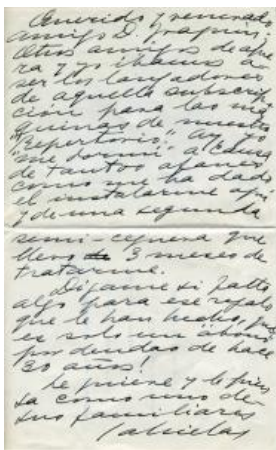 Querido y venerado
amigo D. Joaquín:
Otros amigos de afue
ra y yo íbamos a
ser los lanzadores
de aquella subscrip
ción para las má
quinas de nuestro
"Repertorio". Ay yo
"me dormí" a causa
de tantos afanes
como me ha dado
el instalarme aquí
y de una segunda
semi-ceguera que
llevo 3 meses de
tratarme.
Dígame si falta
algo para ese regalo
que le han hecho, que
es solo un
por deudas de hace
30 años!
Le quiere y le pien
sa como uno de
sus familiares
Gabriela